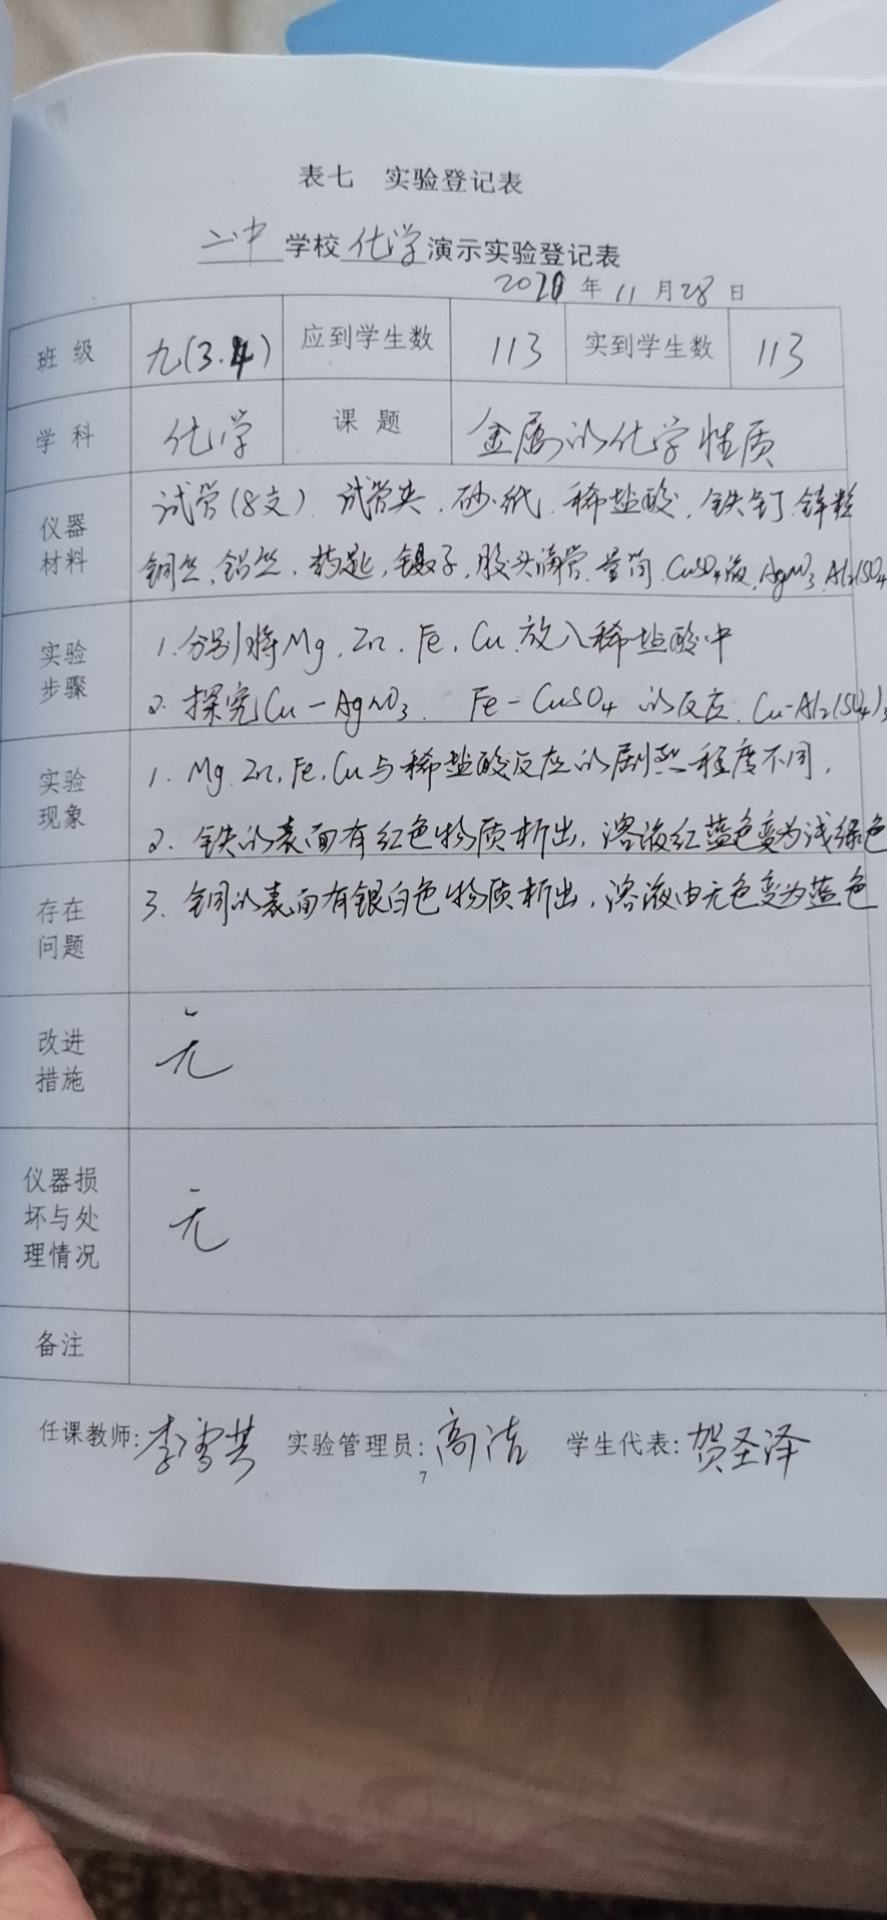 表七 实验登记表
二中学校化学演示实验登记表
年11月28日
班级 九(3.4) 应到学生数 113 实到学生数 113
学科 化学 课题 金属的化学性质
仪器材料 试管(8支) 试管夹、砂纸、稀盐酸、铁钉、锌粒
铜丝、铝丝、药匙、镊子、胶头滴管、量筒、CuSO4液、AgNO3、Al2(SO4
实验步骤 1.分别将Mg、Zn、Fe、Cu放入稀盐酸中
2.探究Cu-AgNO3、Fe-CuSO4的反应、Cu-Al2(SO4)3
实验现象 1.Mg、Zn、Fe、Cu与稀盐酸反应的剧烈程度不同,
2.铁的表面有红色物质析出,溶液红蓝色变为浅绿色
存在问题 3.铜的表面有银白色物质析出,溶液由无色变为蓝色
改进措施 无
仪器损坏与处理情况 无
备注
任课教师: 实验管理员:高洁 学生代表:贺圣泽
7